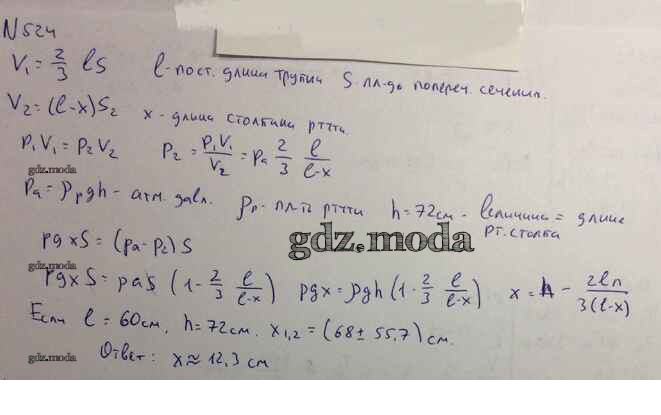 N 524
V₁ = 2/3 lS l - пост. длина трубки S - пл-дь попереч. сечения.
V₂ = (l-x)S₂ x - длина столбика ртути.
P₁V₁ = P₂V₂ P₂ = P₁V₁/V₂ = Pa 2/3 l/(l-x)
gdz.moda
Pa = ρρgh - атм. давл. ρρ - пл-ть ртути h = 72см - величина = длине
рт. столба
gdz.moda
ρgxS = (pa - p₂) S
gdz.moda
ρgxS = paS (1 - 2/3 l/(l-x)) ρgx = ρgh (1 - 2/3 l/(l-x)) x = h - 2lh/3(l-x)
Если l = 60см, h = 72см. x₁,₂ = (68 ± 55,7) см.
gdz.moda
Ответ: x ≈ 12,3 см